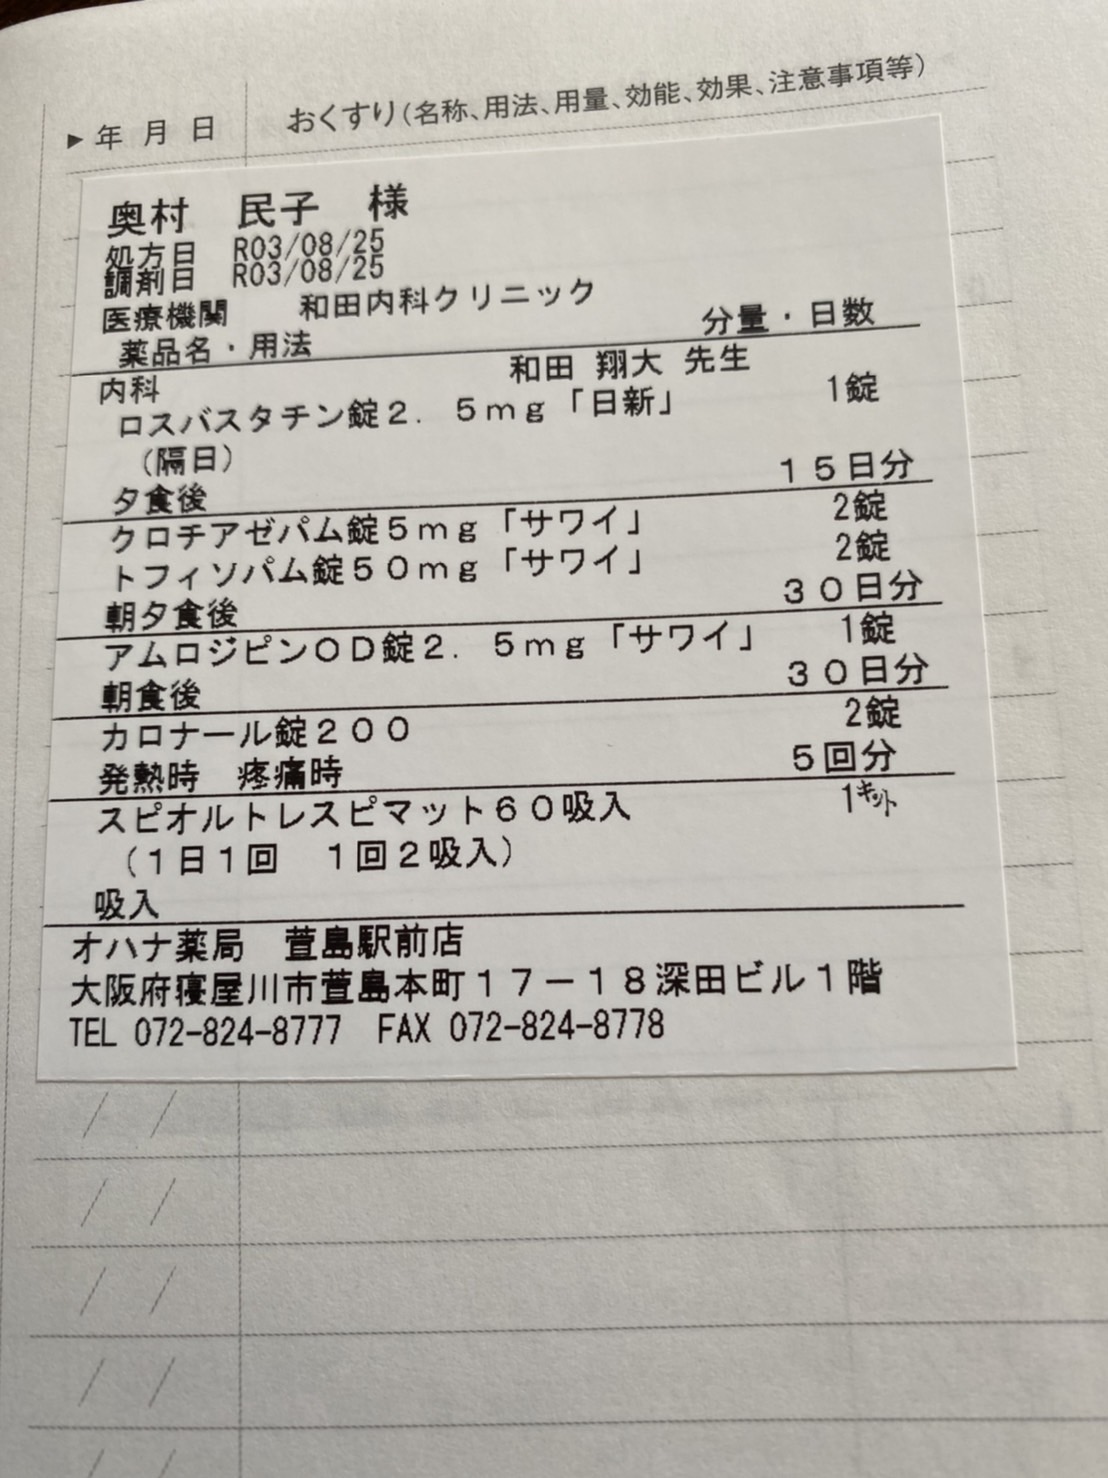 ▶ 年 月 日 おくすり(名称、用法、用量、効能、効果、注意事項等)
奥村 民子 様
処方日 R03/08/25
調剤日 R03/08/25
医療機関 和田内科クリニック
薬品名・用法 分量・日数
内科 和田 翔大 先生
ロスバスタチン錠2.5mg「日新」 1錠
(隔日)
夕食後 15日分
クロチアゼパム錠5mg「サワイ」 2錠
トフィソパム錠50mg「サワイ」 2錠
朝夕食後 30日分
アムロジピンOD錠2.5mg「サワイ」 1錠
朝食後 30日分
カロナール錠200 2錠
発熱時 疼痛時 5回分
スピオルトレスピマット60吸入 1キット
(1日1回 1回2吸入)
吸入
オハナ薬局 萱島駅前店
大阪府寝屋川市萱島本町17-18深田ビル1階
TEL 072-824-8777 FAX 072-824-8778
/ /
/ /
/ /
/ /
/ /